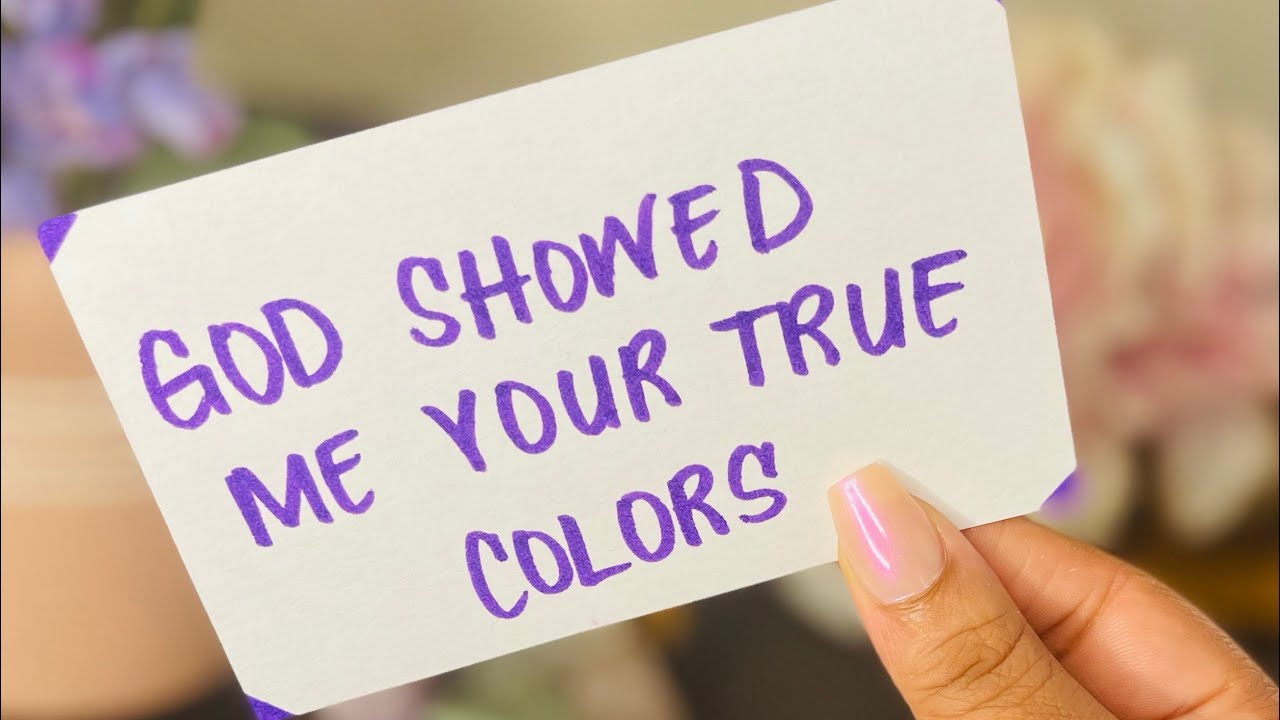 GOD SHOWED
ME YOUR TRUE
COLORS